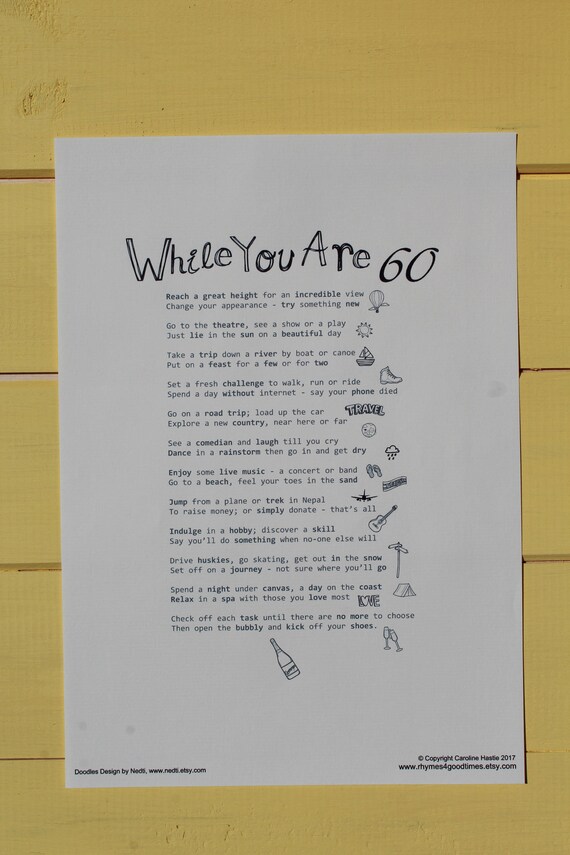 While You Are 60
Reach a great height for an incredible view
Change your appearance - try something new
Go to the theatre, see a show or a play
Just lie in the sun on a beautiful day
Take a trip down a river by boat or canoe
Put on a feast for a few or for two
Set a fresh challenge to walk, run or ride
Spend a day without internet - say your phone died
Go on a road trip; load up the car
TRAVEL
Explore a new country, near here or far
See a comedian and laugh till you cry
Dance in a rainstorm then go in and get dry
Enjoy some live music - a concert or band
Go to a beach, feel your toes in the sand
Jump from a plane or trek in Nepal
To raise money; or simply donate - that's all
Indulge in a hobby; discover a skill
Say you'll do something when no-one else will
Drive huskies, go skating, get out in the snow
Set off on a journey - not sure where you'll go
Spend a night under canvas, a day on the coast
Relax in a spa with those you love most
LOVE
Check off each task until there are no more to choose
Then open the bubbly and kick off your shoes.
Doodles Design by Nedti, www.nedti.etsy.com
© Copyright Caroline Hastle 2017
www.rhymes4goodtimes.etsy.com